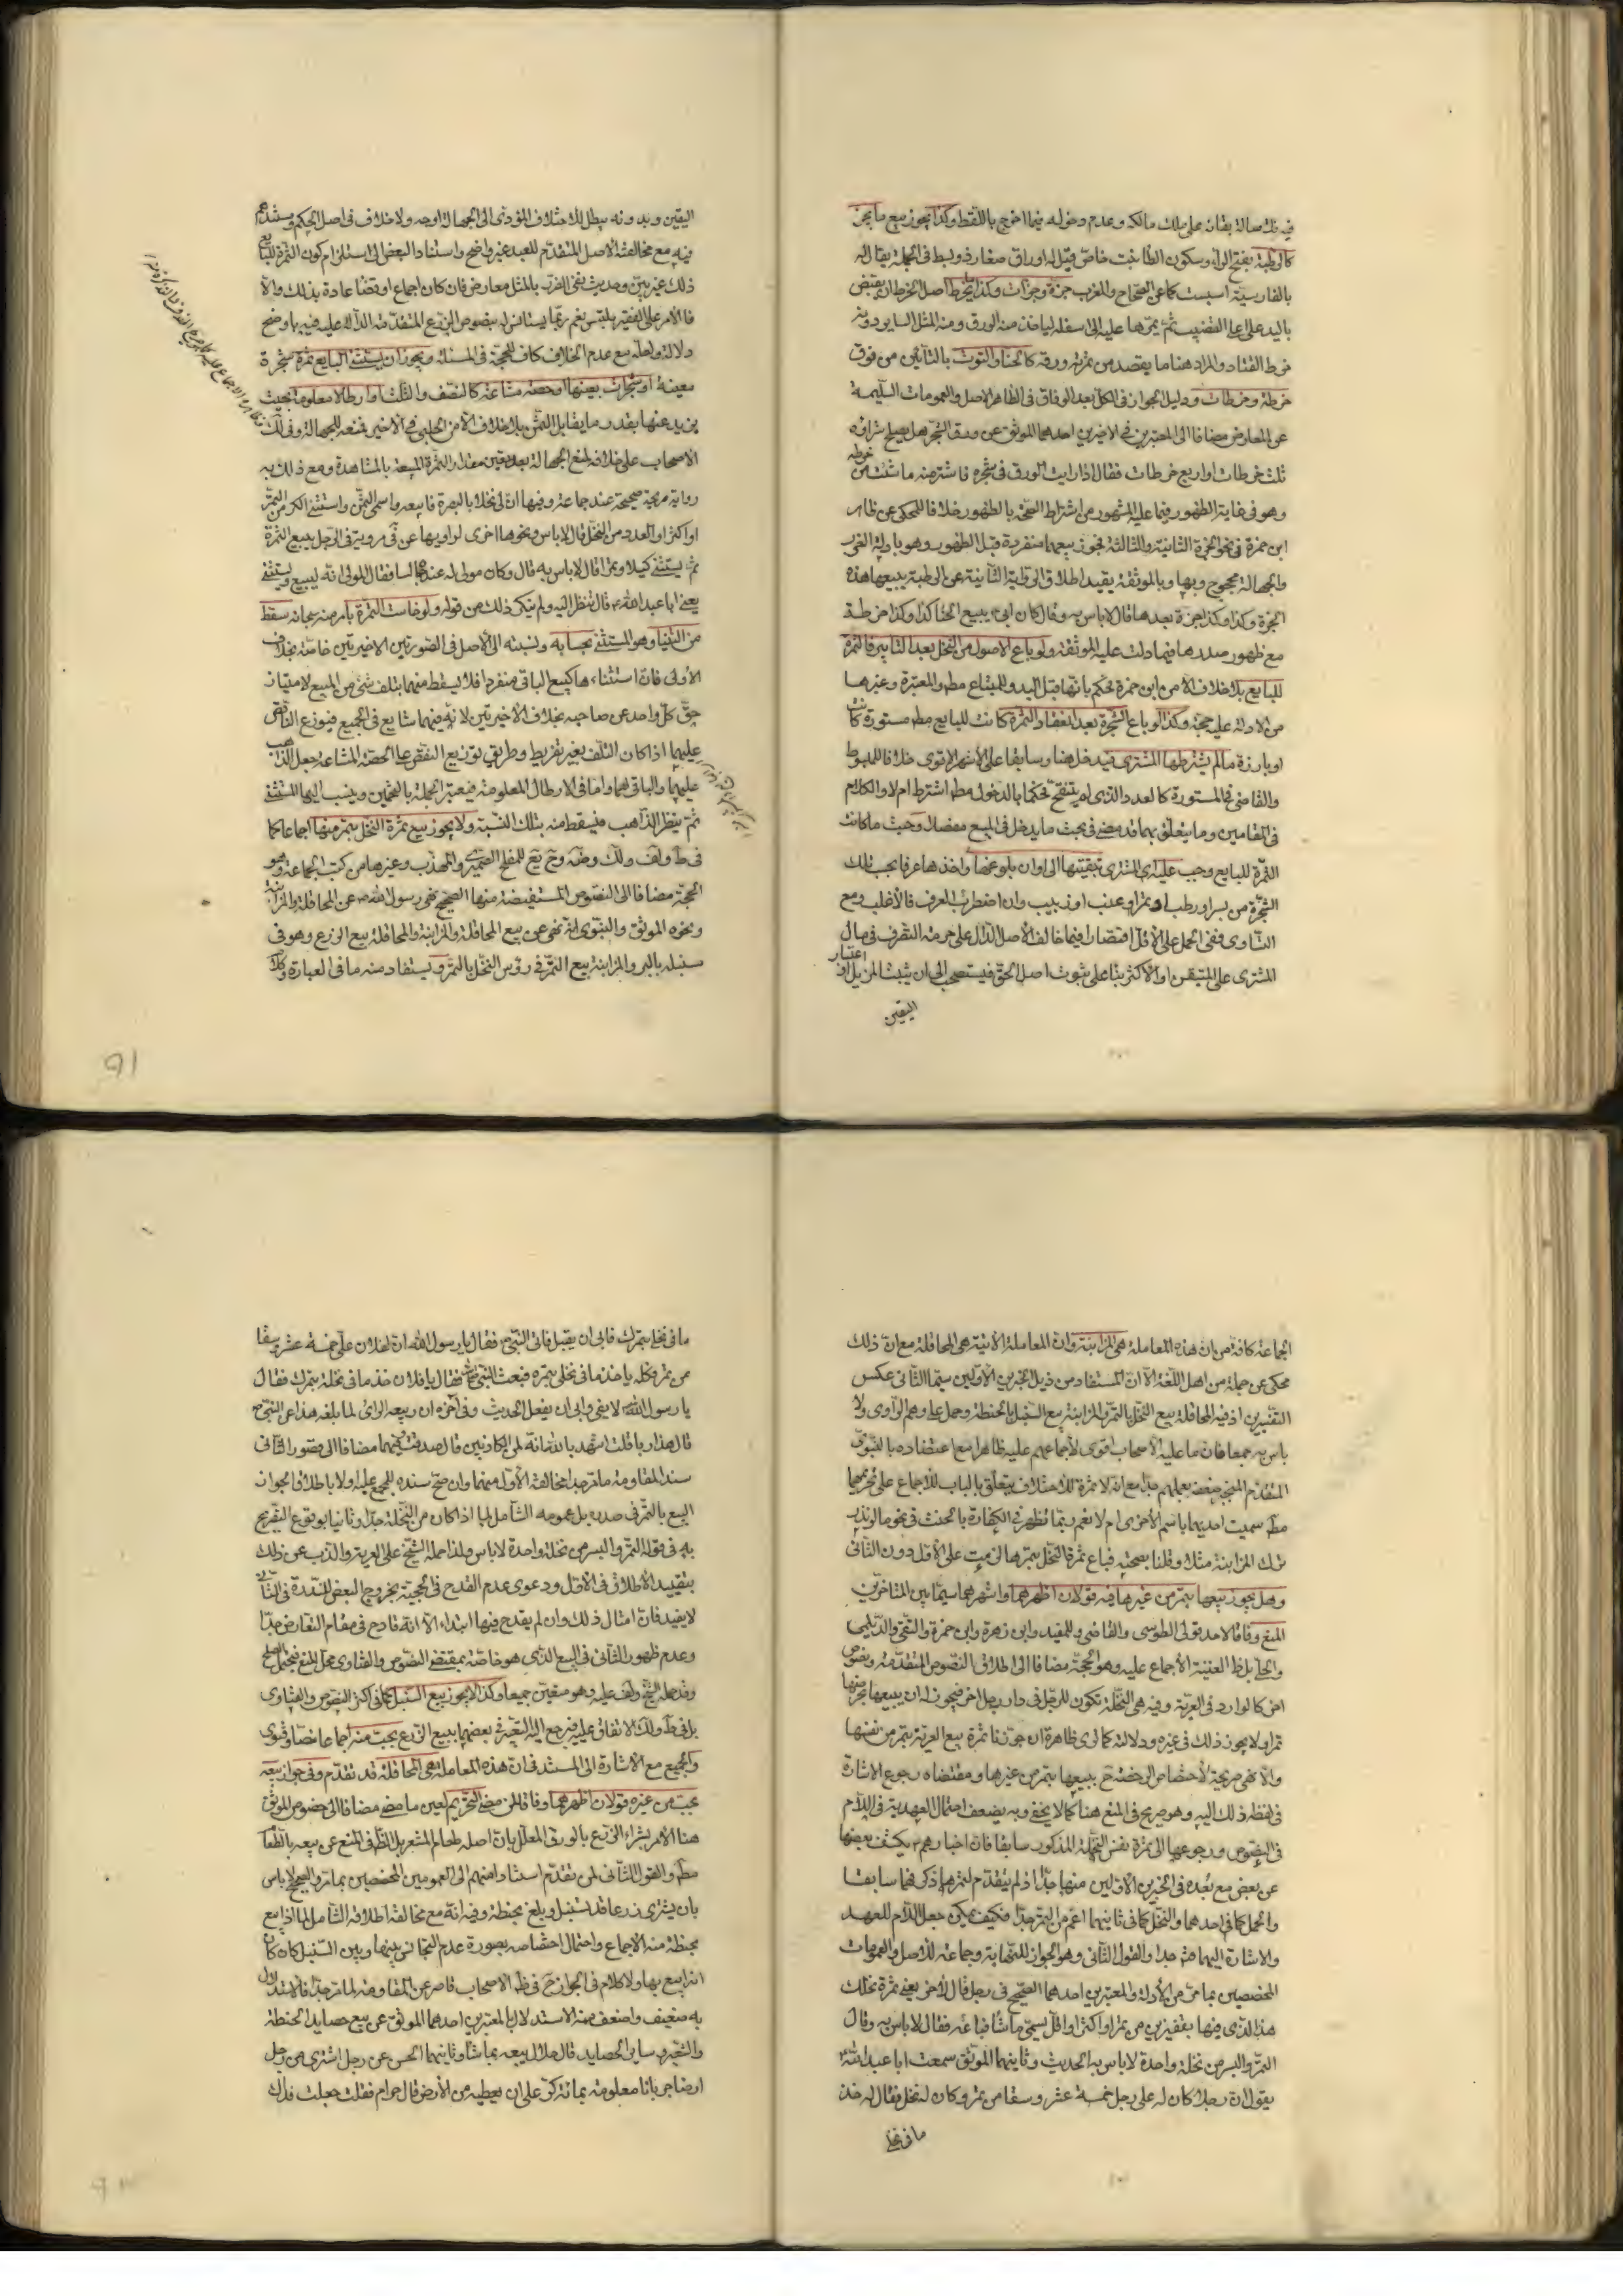 فيه لاصالة بقائه على ملك مالكه وعدم دخوله فيما اخرج باللقط وكذا يجوز بيع ما يجز
كالرطبة بفتح الراء وسكون الطاء نبت خاص قيل له اوراق صغار وبسط في الجملة يقال له
بالفارسية اسبست كما عن الصحاح والمغرب جزة وجزات وكذا ما يخرط اصل الخرط ان يقبض
باليد على اعلى القضيب ثم يمرها عليه الى اسفله لياخذ منه الورق ومنه المثل السائر دونه
خرط القتاد والمراد هنا ما يقصد من ثمرته ورقه كالحنا والتوت بالتائين من فوق
خرطة وخرطات ودليل الجواز في الكل بعد الوفاق في الظاهر الاصل والعمومات السليمة
عن المعارض مضافا الى المعتبرين في الاخيرين احدهما الموثق عن ورق الشجر هل يصلح شراؤه
ثلث خرطات او اربع خرطات فقال اذا رايت الورق في شجره فاشتر منه ما شئت من خرطه
وهو في غاية الظهور فيما عليه المشهور من اشتراط الصحة بالظهور خلافا للمحكي عن ظاهر
ابن حمزة في نحو الجزة الثانية والثالثة فجوز بيعهما منفردة قبل الظهور وهو بادلة الغرر
والجهالة محجوج وبها وبالموثقة يقيد اطلاق الرواية الثانية عن الرطبة يبيعها هذه
الجزة وكذا وكذا جزة بعدها قال لا باس به وقال كان ابي يبيع الحنا كذا وكذا خرطة
مع ظهور صدرها فيما دلت عليه الموثقة ولو باع الاصول من النخل بعد التابير فالثمرة
للبايع بلا خلاف الا من ابن حمزة فحكم بانها قبل البدو للمبتاع مطم والمعتبرة وغيرها
من الادلة عليه حجة وكذا لو باع الشجرة بعد انعقاد الثمرة كانت للبايع مطم مستورة كانت
او بارزة ما لم يشترطها المشتري فيدخل هنا وسابقا على الاشهر الاقوى خلافا للمبسوط
والقاضي في المستورة كالعدد الذي لم يتفتح فحكما بالدخول مطم اشترط ام لا والكلام
في المقامين وما يتعلق بهما قد مضى في بحث ما يدخل في المبيع مفصلا وحيث ما كانت
الثمرة للبايع وجب على المشتري تبقيتها الى اوان بلوغها واخذها عرفا بحسب تلك
الشجرة من بسر او رطب او تمر او عنب او زبيب وان اضطرب العرف فالاغلب ومع
التساوي ففي الحمل على الاقل اقتصارا فيما خالف الاصل الدال على حرمة التصرف في مال
المشتري على المتيقن او الاكثر بناء على ثبوت اصل الحق فيستصحب الى ان يثبت المزيل او اعتبار
اليقين
اليقين وبدونه يبطل للاختلاف المؤدي الى الجهالة اوجه ولا خلاف في اصل الحكم
فيه مع مخالفته الاصل المتقدم للعبد غير واضح واستناد البعض الى استلزام كون الثمرة للبايع
ذلك غير بين وحديث نفي الضرر بالمثل معارض فان كان اجماع او قضا عادة بذلك والا
فالامر على الفقير ملتبس نعم ربما يستانس له ببعض نصوص الزرع المتقدمة الدالة عليه فيه باوضح
دلالة ولعله مع عدم الخلاف كاف للحجة في المسئلة ويجوز ان يستثني البايع ثمرة شجرة
معينة او شجرات بعينها او حصة مشاعة كالنصف والثلث او ارطالا معلومة بحيث
يزيد عنها بقدر ما يقابل الثمن بلا خلاف الا من الحلبي في الاخير فمنعه للجهالة وفي لك
الاصحاب على خلافه لمنع الجهالة بعد تعين مقدار الثمرة المبيعة بالمشاهدة ومع ذلك به
رواية صريحة صحيحة عند جماعة وفيها ان لي نخلا بالبصرة فابيعه واسمي الثمن واستثني الكر من التمر
او اكثر او العدد من النخل قال لا باس ونحوها اخرى لراويها عن في مروية في الرجل يبيع الثمرة
ثم يستثني كيلا وتمرا قال لا باس به قال وكان مولى له عنده جالسا فقال المولى انه ليبيع ويستثني
يعني ابا عبد الله ع قال فنظر اليه ولم ينكر ذلك من قوله ولو خاست الثمرة بامر منه سبحانه سقط
من الثنيا وهو المستثنى بحسابه ونسبته الى الاصل في الصورتين الاخيرتين خاصة بخلاف
الاولى فان استثناءها كبيع الباقي منفردا فلا يسقط منهما بتلف شئ من المبيع لامتياز
حق كل واحد عن صاحبه بخلاف الاخيرتين لانه فيهما شايع في الجميع فيوزع الناقص
عليهما اذا كان التلف بغير تفريط وطريق توزيع النقص على الحصة المشاعة جعل الذاهب
عليهما والباقي لهما واما في الارطال المعلومة فيعتبر الجملة بالتخمين وينسب اليها المستثنى
ثم ينظر الذاهب فيسقط منه بتلك النسبة ولا يجوز بيع ثمرة النخل بتمر منها اجماعا كما
في ط ولف ولك وضه وح يع للمفلح الصيمري والمهذب وغيرها من كتب الجماعة وهو
الحجة مضافا الى النصوص المستفيضة منها الصحيح نهى رسول الله ص عن المحاقلة والمزابنة
ونحوه الموثق والنبوي انه نهى عن بيع المحاقلة والمزابنة والمحاقلة بيع الزرع وهو في
سنبله بالبر والمزابنة بيع التمر في رؤس النخل بالتمر ويستفاد منه ما في العبارة وكلام
الجماعة كافة من ان هذه المعاملة هي المزابنة وان المعاملة الاتية هي المحاقلة مع ان ذلك
محكي عن جملة من اهل اللغة الا ان المستفاد من ذيل الخبرين الاولين سيما الثاني عكس
التفسيرين اذ فيه المحاقلة بيع النخل بالتمر والمزابنة بيع السنبل بالحنطة وحمل على وهم الراوي ولا
باس به جمعا فان ما عليه الاصحاب اقوى لاجماعهم عليه ظاهرا مع اعتضاده بالنبوي
المتقدم المنجبر ضعفه بعملهم جدا مع انه لا ثمرة للاختلاف يتعلق بالباب للاجماع على تحريمهما
مطم سميت احديهما باسم الاخرى ام لا نعم ربما تظهر في الكفارة بالحنث في نحو ما لو نذر
ترك المزابنة مثلا وقلنا بصحته فباع ثمرة النخل بتمرها لزمت على الاول دون الثاني
وهل يجوز بيعها بتمر من غيرها فيه قولان اظهرهما واشهرهما سيما بين المتاخرين
المنع وفاقا لاحد قولى الطوسي والقاضي وللمفيد وابن زهرة وابن حمزة والتقي والديلمي
والحلي بل ظ الغنية الاجماع عليه وهو الحجة مضافا الى اطلاق النصوص المتقدمة ونصوص
اخر كالوارد في العرية وفيه هي النخلة تكون للرجل في دار رجل اخر فيجوز له ان يبيعها بخرصها
تمرا ولا يجوز ذلك في غيره ودلالته كما ترى ظاهرة ان جوزنا ثمرة بيع العرية بتمر من نفسها
والا فهي صريحة لاختصاص الرخصة ح ببيعها بتمر من غيرها ومقتضاه رجوع الاشارة
في لفظه ذلك اليه وهو صريح في المنع هنا كما لا يخفى وبه يضعف احتمال العهدية في اللام
في النصوص ورجوعها الى ثمرة نفس النخلة المذكور سابقا فان اخبارهم ع يكشف بعضها
عن بعض مع بعده في الخبرين الاولين منها جدا اذ لم يتقدم لتمرها ذكر فيهما سابقا
والحمل كما في احدهما والنخل كما في ثانيهما اعم من التمر جدا فكيف يمكن جعل اللام للعهد
والاشارة اليهما جدا والقول الثاني وهو الجواز للنهاية وجماعة للاصل والعمومات
المخصصين بما مر من الادلة والمعتبرين احدهما الصحيح في رجل قال لاخر بعني ثمرة نخلك
هذا الذي فيها بقفيزين من تمر او اكثر او اقل يسمي ما شاء فباعه فقال لا باس به وقال
التمر والبسر من نخلة واحدة لا باس به الحديث وثانيهما الموثق سمعت ابا عبد الله ع
يقول ان رجلا كان له على رجل خمسة عشر وسقا من تمر وكان له نخل فقال له خذ
ما في نخلي
ما في نخلي بتمرك فابى ان يقبل فاتى النبي ص فقال يا رسول الله ان لفلان على خمسة عشر وسقا
من تمر فكلمه ياخذ ما في نخلي بتمره فبعث النبي ص فقال يا فلان خذ ما في نخله بتمرك فقال
يا رسول الله لا يفي وابى ان يفعل الحديث وفي اخره ان ربيعة الراي لما بلغه هذا عن النبي ص
قال هذا ربا قلت اشهد بالله انه لمن الكاذبين قال صدقت وفيهما مضافا الى قصور الثاني
سندا لمقاومة ما مر جدا مخالفة الاول منهما وان صح سنده للمجمع عليه ولا باطلاق الجواز
البيع بالتمر في صدره بل عمومه الشامل لما اذا كان من النخلة جدا وثانيا بوقوع التصريح
به في قوله التمر والبسر من نخلة واحدة لا باس ولذا حمله الشيخ على العرية والذب عن ذلك
بتقييد الاطلاق في الاول ودعوى عدم القدح في الحجية بخروج البعض للشذة في الثاني
لا يفيد فان امثال ذلك وان لم يقدح فيها ابتداء الا انه قادح في مقام التعارض جدا
وعدم ظهور الثاني في البيع الذي هو خاصة بمقتضى النصوص والفتاوى محل المنع فيحتمل الصلح
وقد حمله الشيخ ولف عليه وهو متعين جمعا وكذا لا يجوز بيع السنبل كما في اكثر النصوص والفتاوى
بل في ط ولك الاتفاق عليه مرجع اليه التعبير في بعضهما ببيع الزرع بحب منه اجماعا نصا وفتوى
والجميع مع الاشارة الى المستند في ان هذه المعاملة هي المحاقلة قد تقدم وفي جواز بيعه
بحب من غيره قولان اظهرهما وفاقا لمن مضى التحريم لعين ما مضى مضافا الى خصوص الموثق
هنا الامر بشراء الزرع بالورق المعلل بان اصله طعام المشعر بل الظ في المنع عن بيعه بالطعام
مطم والقول الثاني لمن تقدم استنادا منهم الى العمومين المخصصين بما مر والصحيح لا باس
بان يشترى زرعا قد سنبل وبلغ بحنطة وفيه انه مع مخالفة اطلاقه الشامل لما اذا بيع
بحنطة منه الاجماع واحتمال اختصاصه بصورة عدم التجانس بينها وبين السنبل كان كان
ارزا بيع بها ولا كلام في الجواز ح في ظ الاصحاب قاصر عن المقاومة لما مر جدا فالاستدلال
به ضعيف واضعف منه الاستدلال بالمعتبرين احدهما الموثق عن بيع حصايد الحنطة
والشعير وساير الحصايد قال حلال يبيعه بما شاء وثانيهما الحسن عن رجل اشترى من رجل
ارضا جربانا معلومة بمائة كر على ان يعطيه من الارض قال حرام فقلت جعلت فداك
91